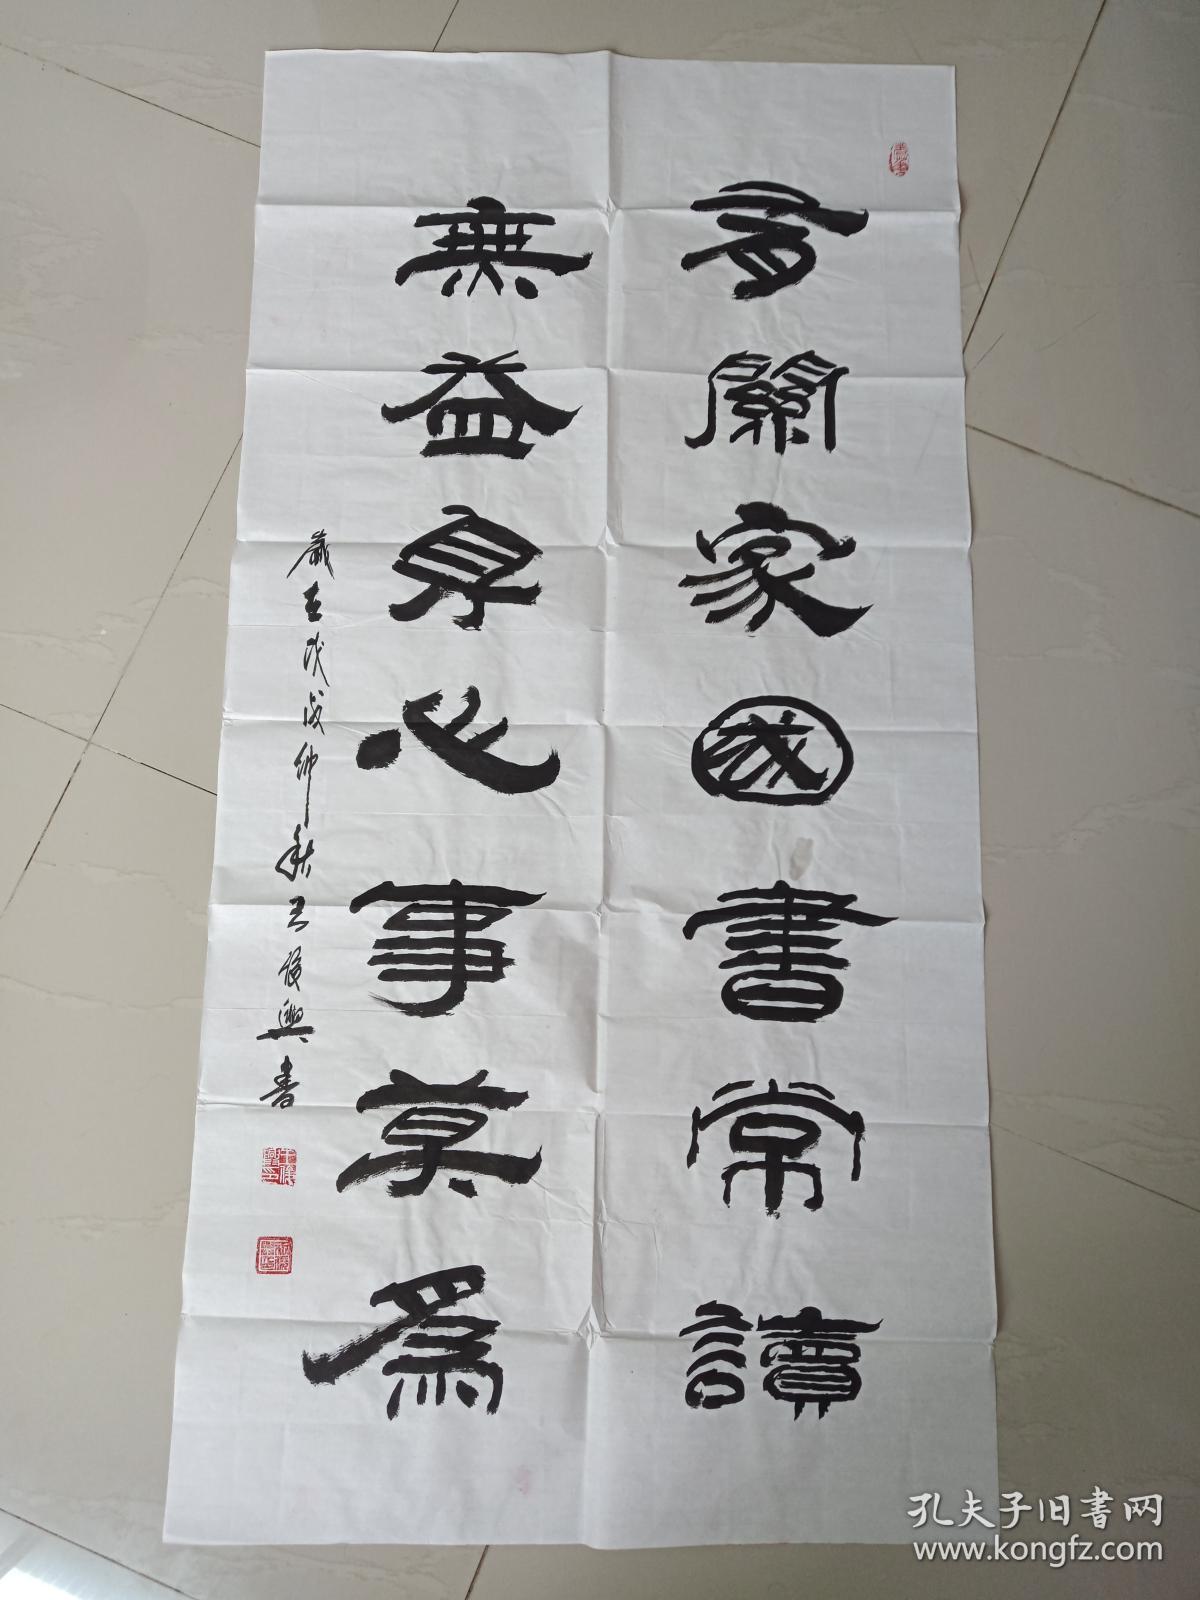 有關家國書常讀
無益身心事莫為
歲在戊戌仲秋王俊興書
孔夫子旧书网
www.kongfz.com